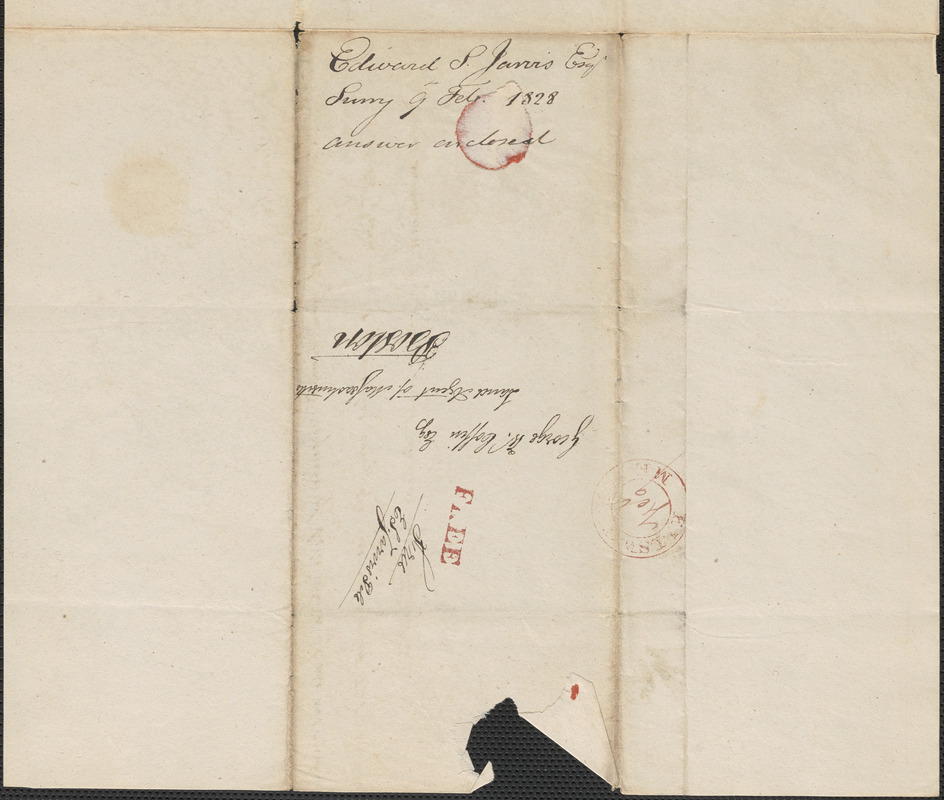 Edward S. Jarvis Esqr
Surry 9 Feb. 1828
answer enclosed
George W. Coffin Esq
Land Agent of Massachusetts
Boston
FREE
Free
E S Jarvis P M
Feb
ME